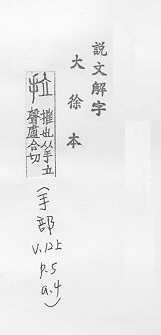 說文解字
大徐本
拉 摧也从手立
聲盧合切
(手部
V.12上
P.5
a.4)